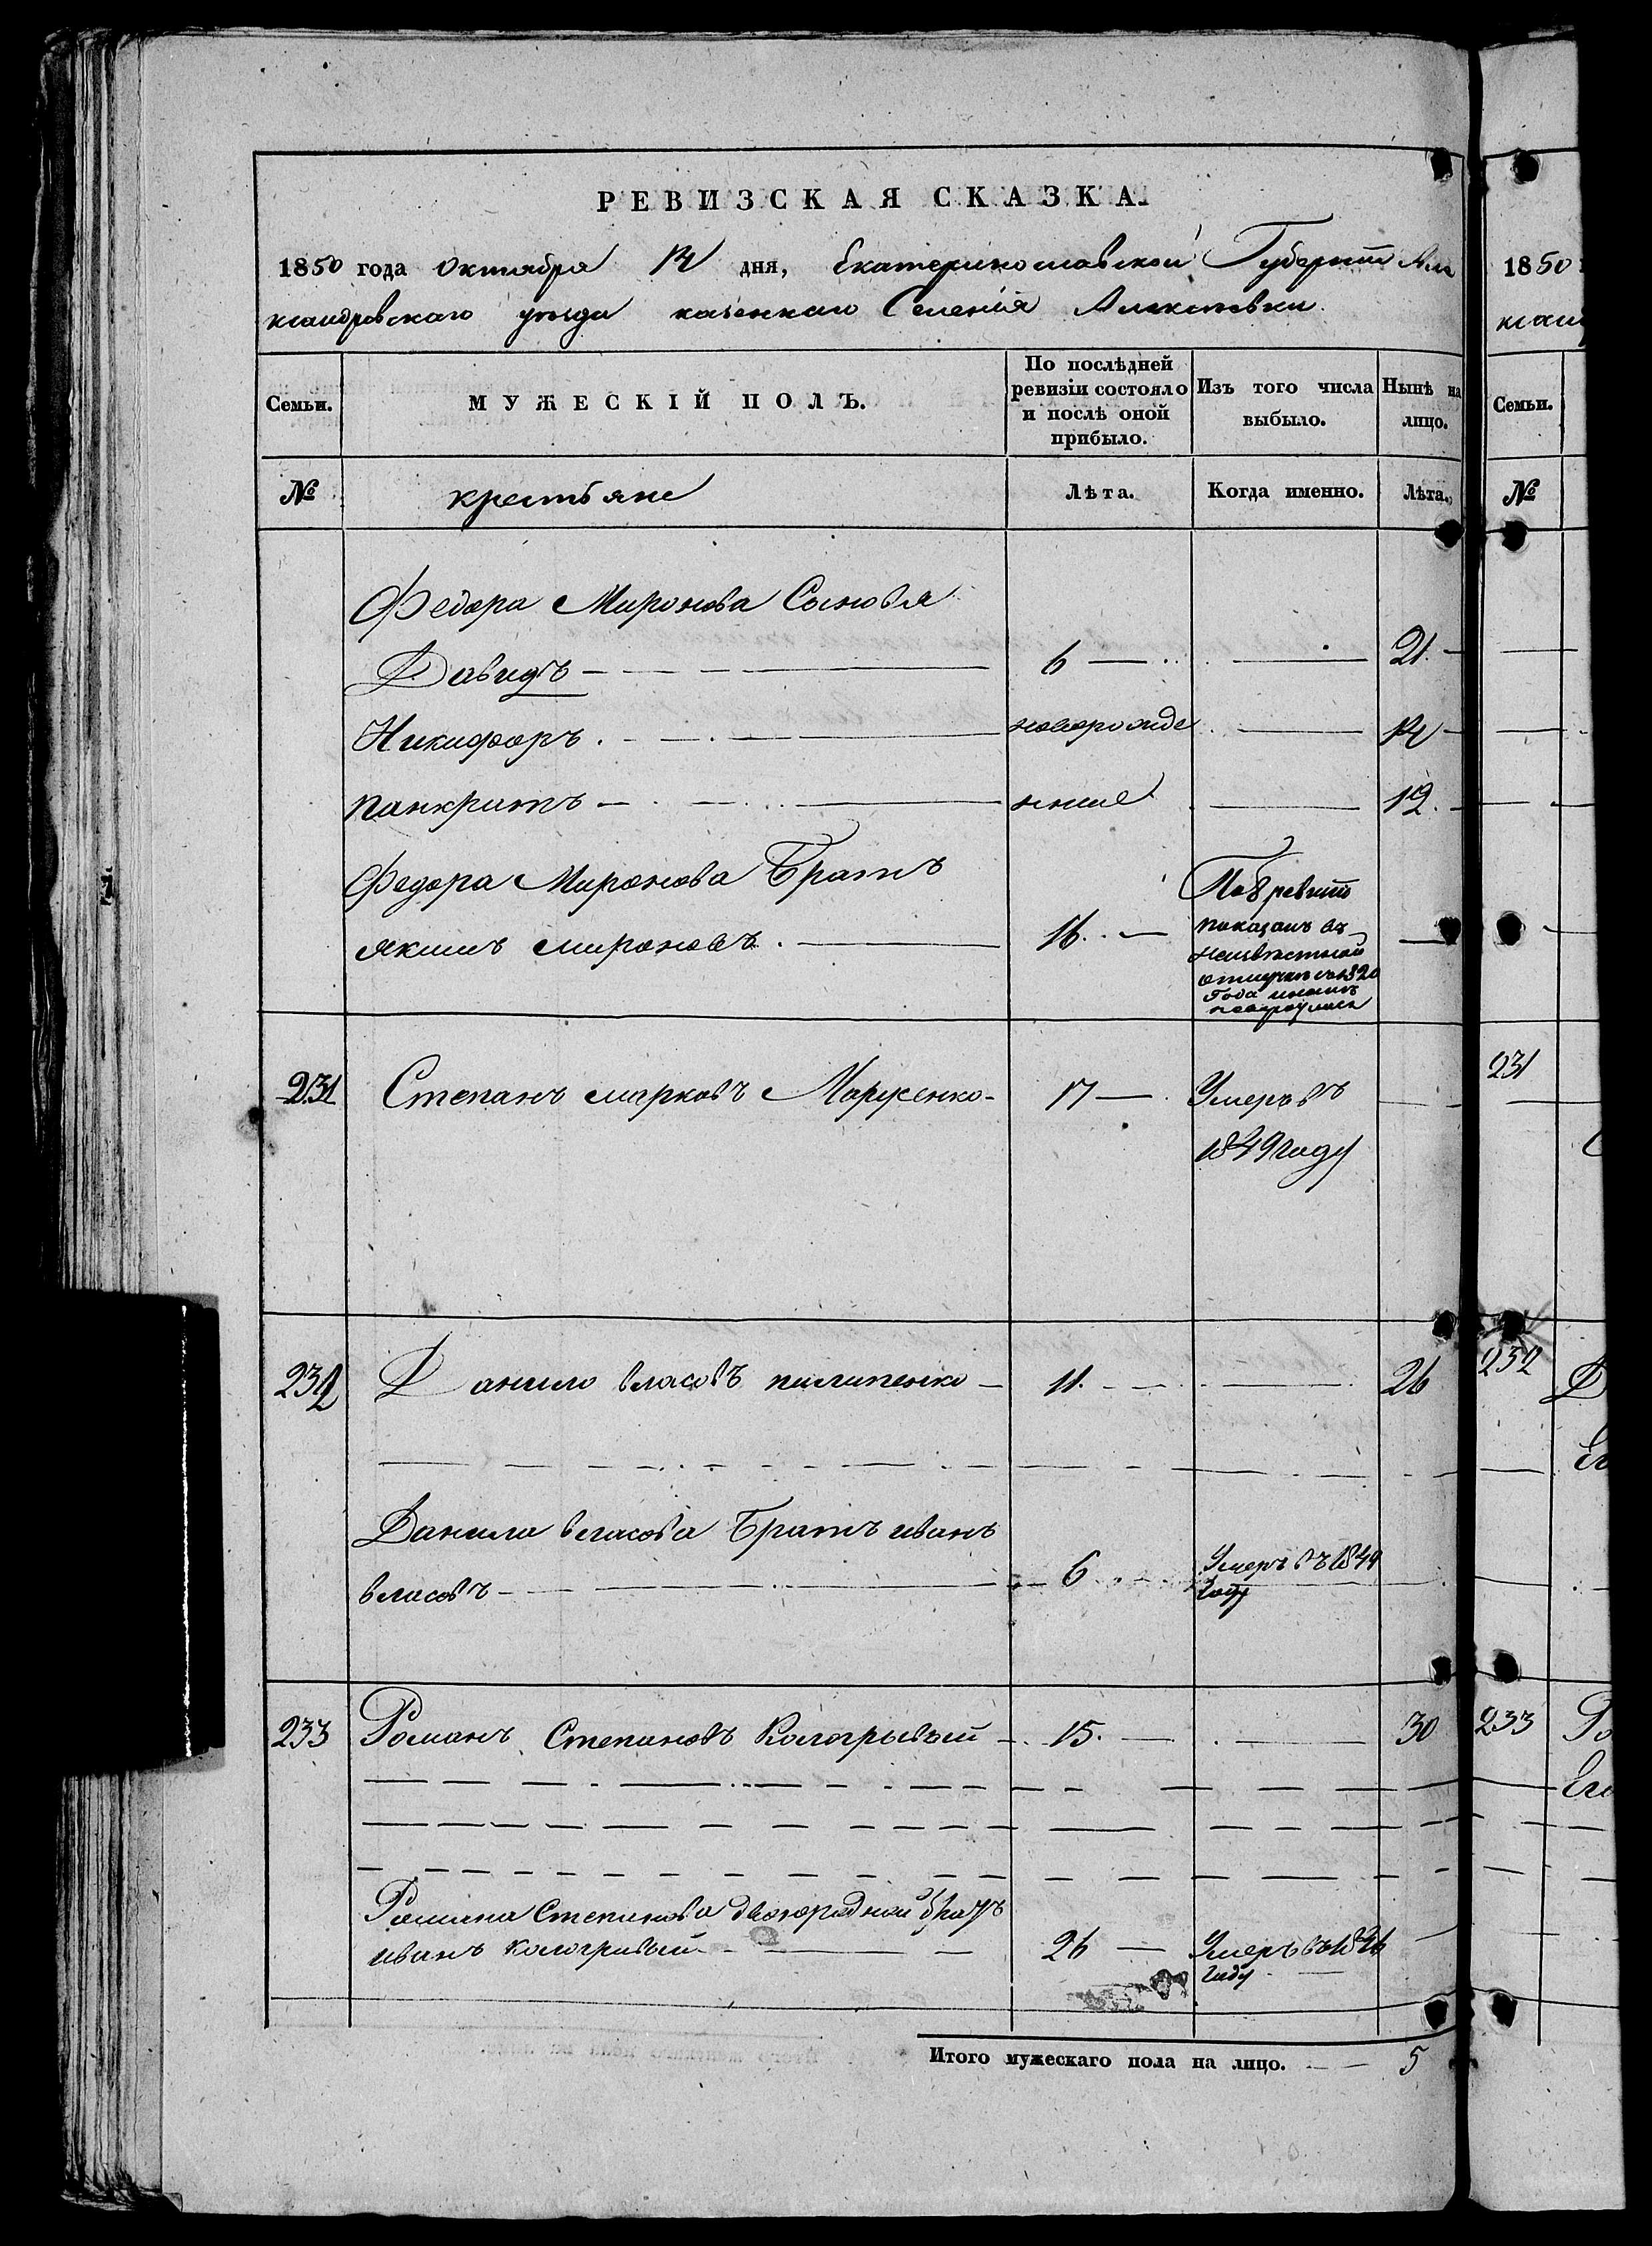 РЕВИЗСКАЯ СКАЗКА.
1850 года Октября 14 дня, Екатеринославской Губернии Але
ксандровскаго уезда казенкаго Селенія Алексеевки
Семьи. МУЖЕСКІЙ ПОЛЪ. По послѣдней ревизіи состояло и послѣ оной прибыло. Изъ того числа выбыло. Нынѣ на лицо. Семьи.
№ крестьяне Лѣта. Когда именно. Лѣта. №
Федора Миронова Сыновья
Давидъ 6 21
Никифоръ новорожде 14
панкратъ нные 12
Федора Миронова Братъ По 8 ревизіи
якимъ мироновъ 16 показанъ въ
неизвестной
отлучке 1820
Года
231 Степанъ марковъ Марусенко 17 Умеръ въ 231
1849 году
232 Данило власовъ пилипенко 11 26 232 Д
Ег
Данила власова Братъ иванъ
власовъ 6 Умеръ въ 1849
Году
233 Романъ Степановъ Кологрывый 15 30 233 Ро
Его
Романа Степанова двоюродной братъ
иванъ кологривый 26 Умеръ въ 1846
Году
Итого мужескаго пола на лицо. 5
1850
ксан